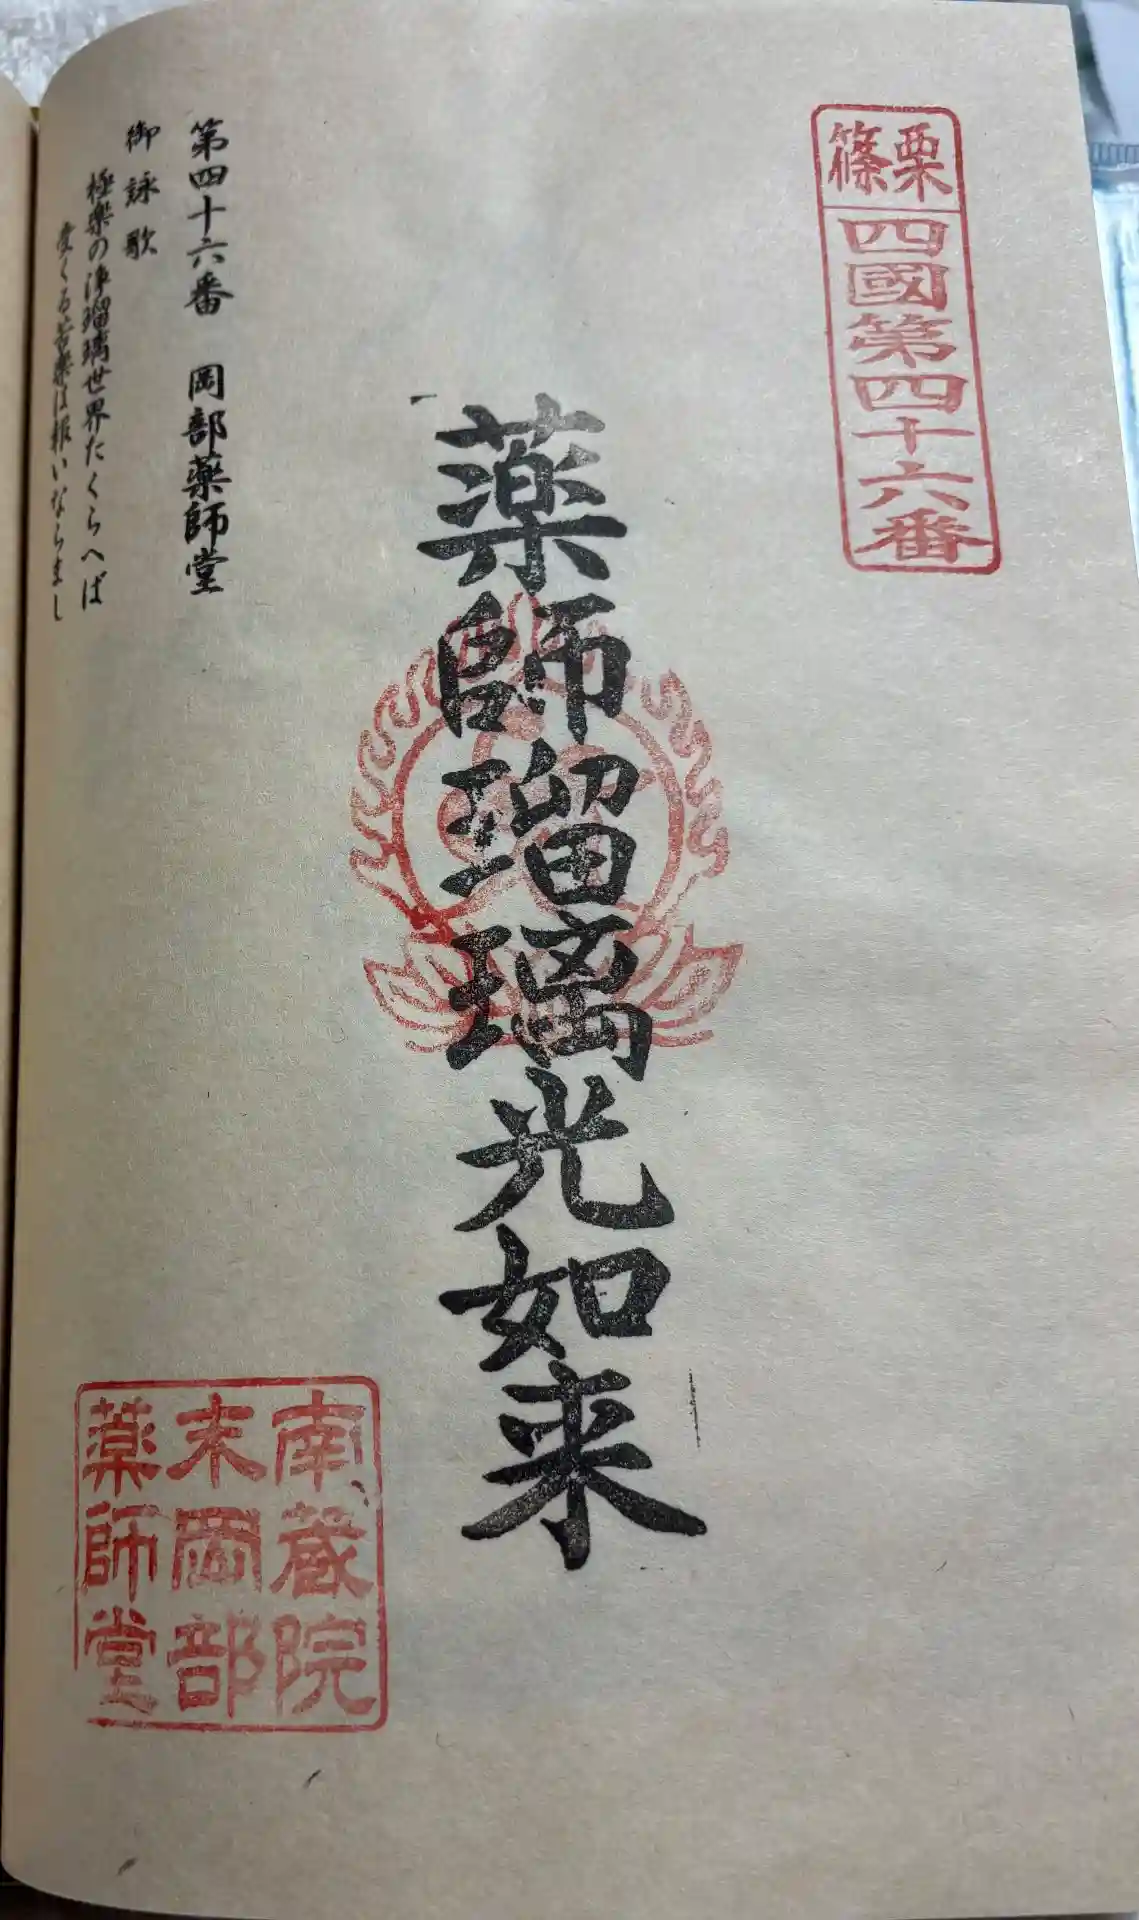 栗篠
四國第四十六番
薬師瑠璃光如来
第四十六番 岡部薬師堂
御詠歌
極楽の浄瑠璃世界たくらへば
受くる苦薬は報いならまし
南蔵院
末岡部
薬師堂